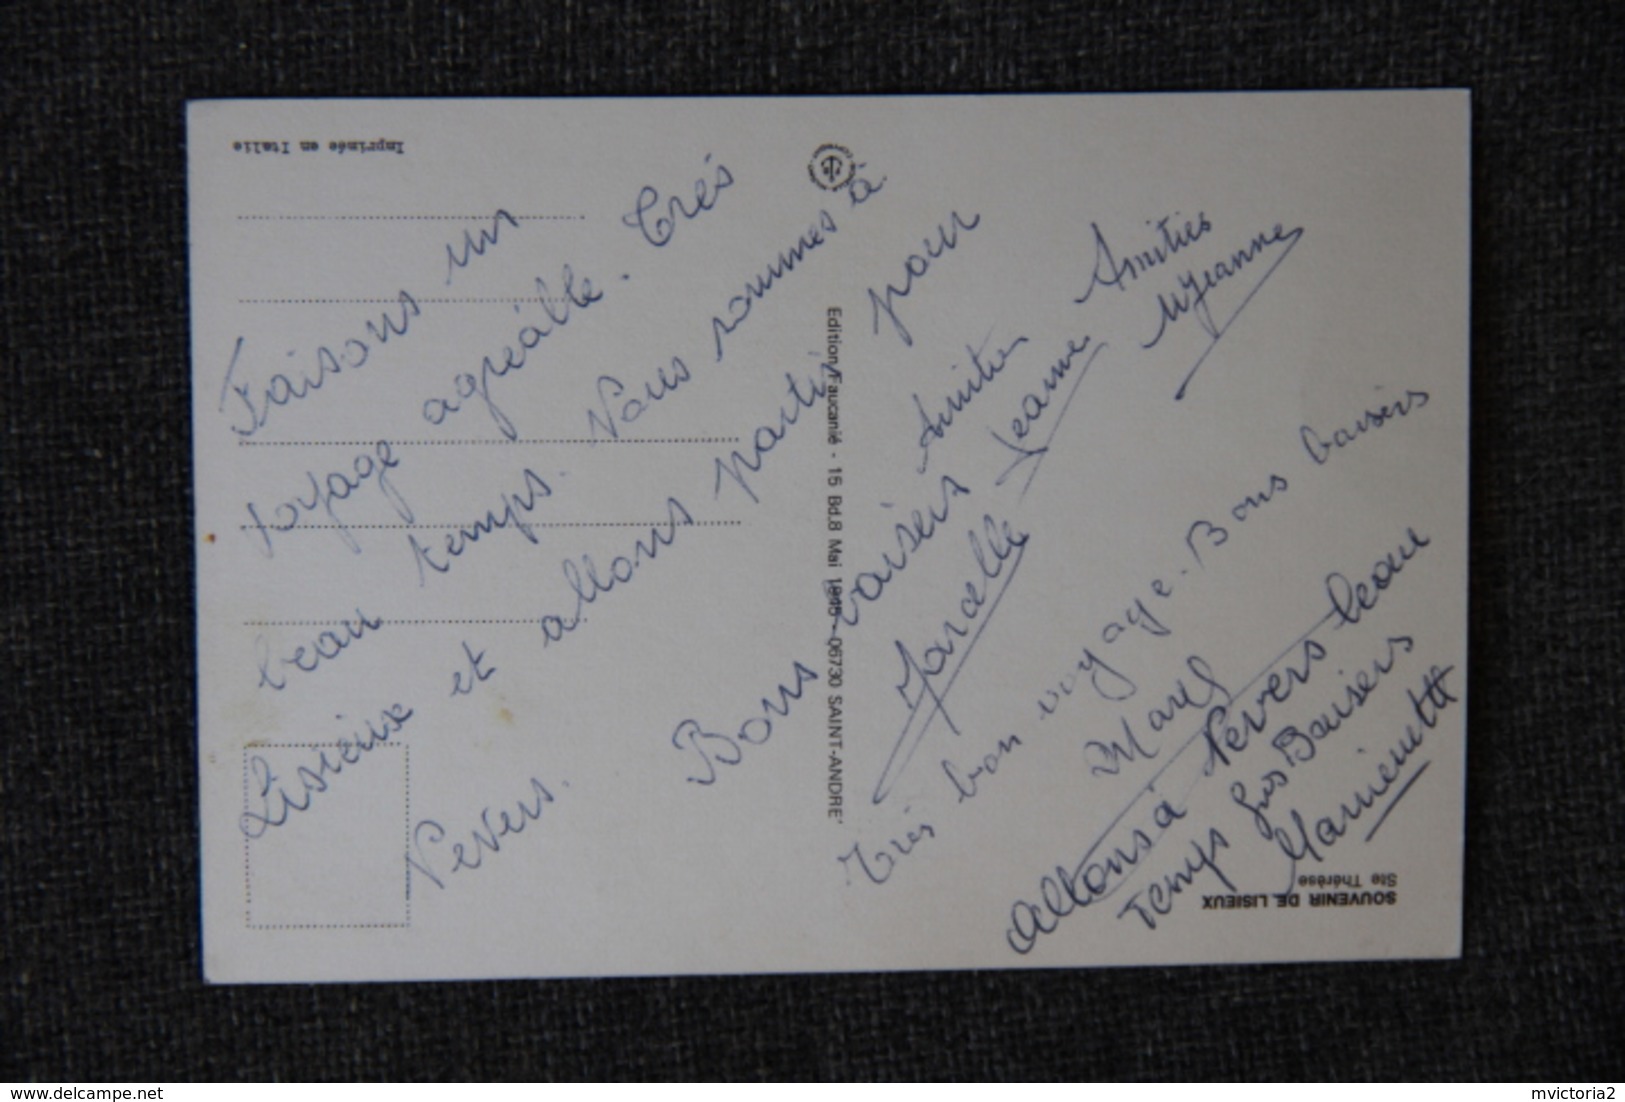 Faisons un
voyage agréable. Très
beau temps. Nous sommes à
Lisieux et allons partir pour
Nevers.
Bons baisers Amitiés
Marcelle Jeanne
Amitiés
MJeanne
Très bon voyage. Bons baisers
Marcel
Allons à Nevers beau
Temps Gros Baisers
Marinette
Imprimée en Italie
Edition Faucanié - 15 Bd.8 Mai 1945 - 06730 SAINT-ANDRE'
SOUVENIR DE LISIEUX
Ste Thérèse
mvictoria2